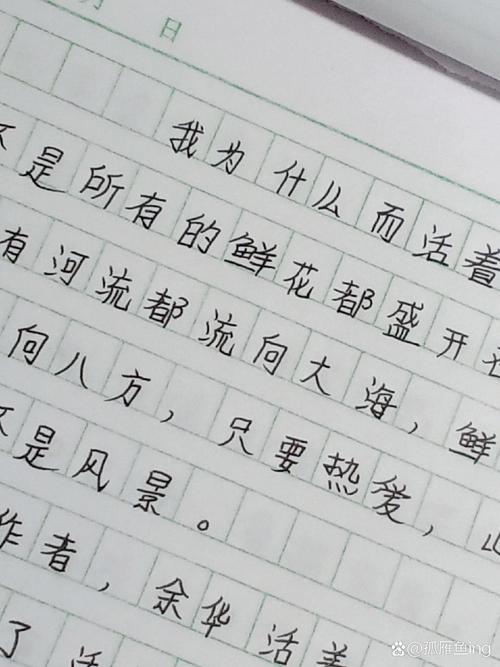 月 日
我为什么而活着
不是所有的鲜花都盛开在
有河流都流向大海，鲜
向八方，只要热爱，心
不是风景。
作者，余华活着
了活
孤雁鱼ing